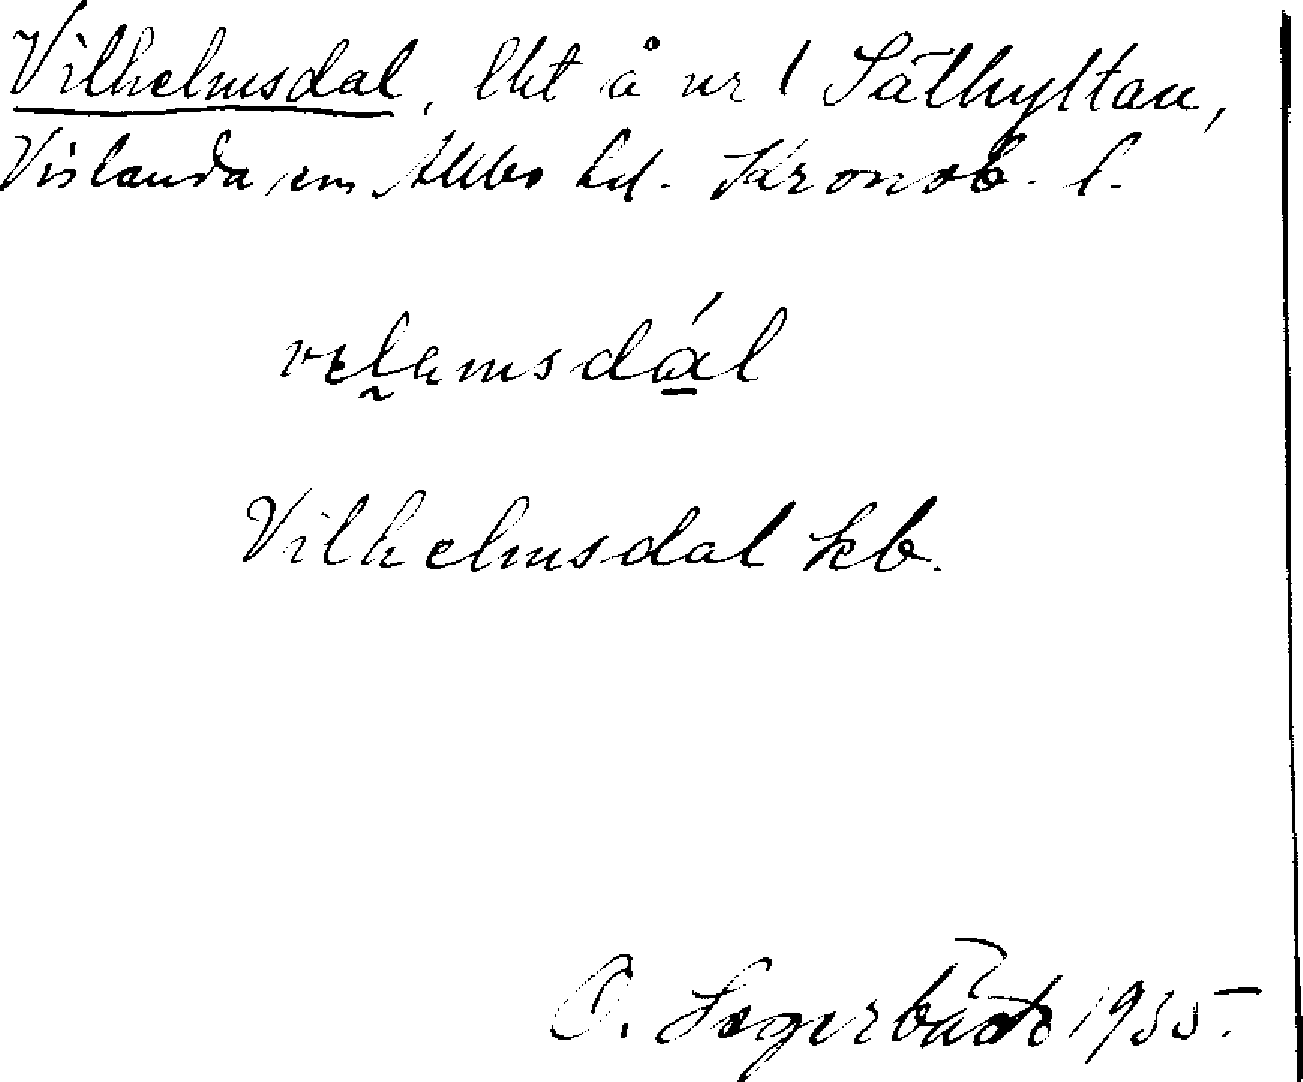 Vilhelmsdal, lht å nr 1 Säthyltan,
Vislanda sn Allbo hd. Kronob. l.
velamsdál
Vilhelmsdal kb.
O. 1935.